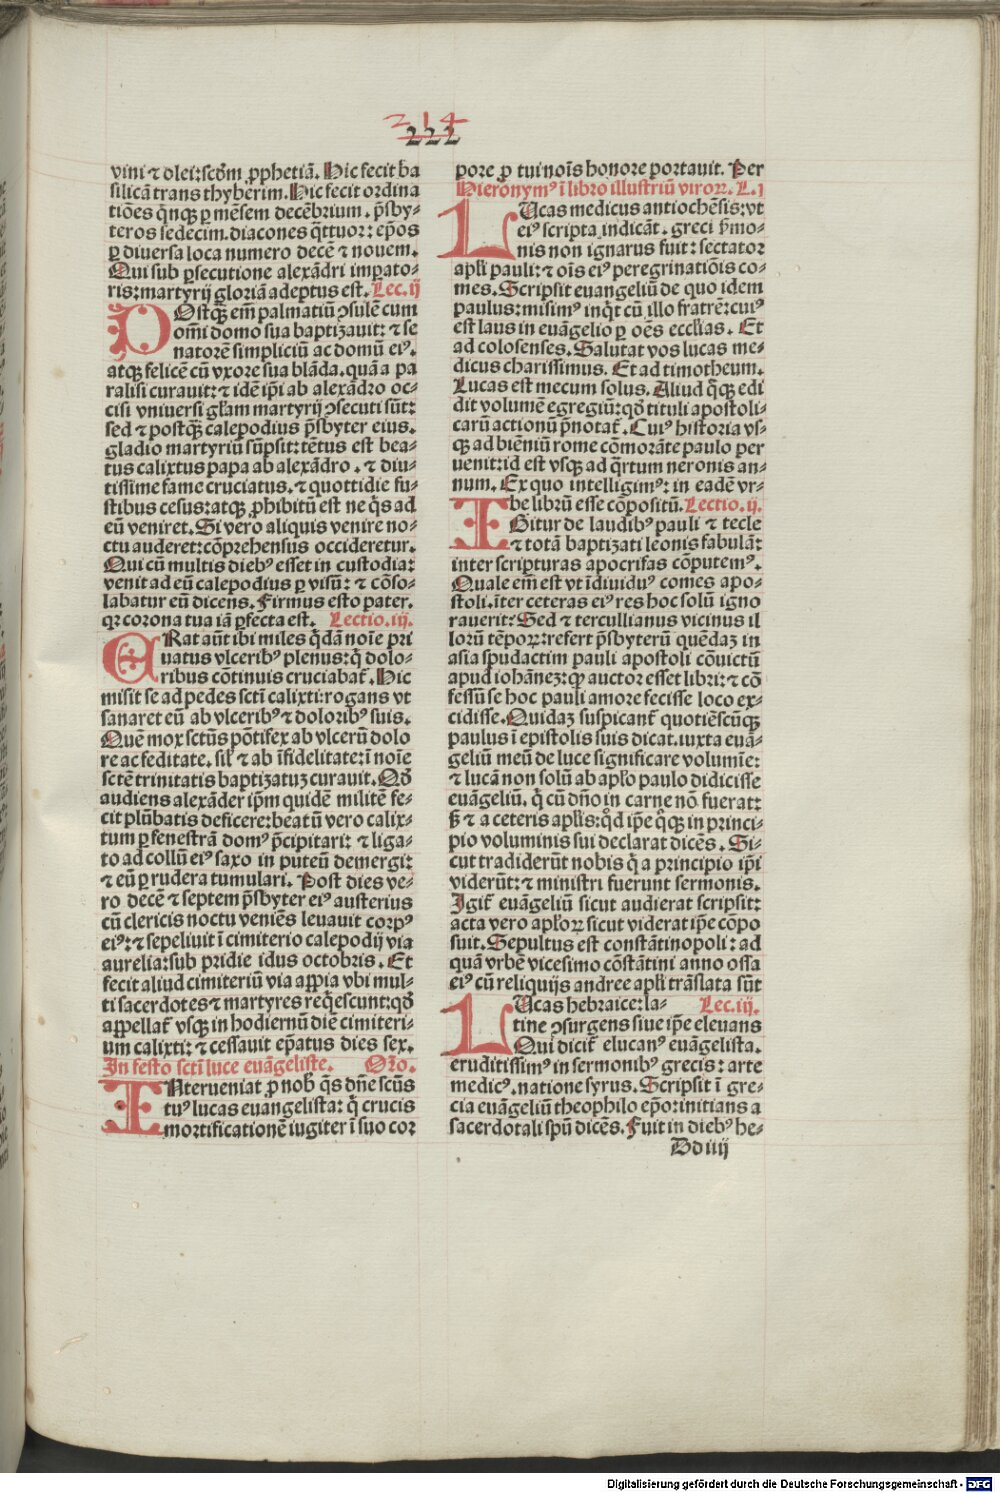 214
222
vini ⁊ olei: scd̄m ꝓphetiā. Hic fecit ba
silicā trans thyberim. Hic fecit ordina
tiōes q̄nqꝫ ꝑ mēsem decēbrium. p̄sby⸗
teros sedecim. diacones q̄ttuor: ep̄os
ꝑ diversa loca numero decē ⁊ novem.
Qui sub ꝑsecutione alexādri imꝑato⸗
ris: martyrij gloriā adeptus est. Lec. ij
POstqꝫ em̄ palmatiū ꝯsulē cum
om̄i domo sua baptizauit: ⁊ se
natorē simpliciū ac domū eiꝰ.
atqꝫ felicē cū vxore sua blāda. quā a pa
ralisi curauit: ⁊ idē ip̄i ab alexādro oc⸗
cisi vniuersi gl̄am martyrij ꝯsecuti sūt:
sed ⁊ postqꝫ calepodius p̄sbyter eius.
gladio martyriū sūpsit: tētus est bea⸗
tus calixtus papa ab alexādro. ⁊ diu⸗
tissime fame cruciatus. ⁊ quottidie fu⸗
stibus cesus: atqꝫ ꝓhibitū est ne q̄s ad
eū veniret. Si vero aliquis venire no⸗
ctu auderet: cōprehensus occideretur.
Qui cū multis diebꝰ esset in custodia:
venit ad eū calepodius ꝑ visū: ⁊ cōso⸗
labatur eū dicens. Firmus esto pater.
qꝛ corona tua iā ꝑfecta est. Lectio. iij.
ERat aūt ibi miles q̄dā noīe pri
uatus vlceribꝰ plenus: q̄ dolo⸗
ribus cōtinuis cruciabat̄. Hic
misit se ad pedes scti̅ calixti: rogans vt
sanaret eū ab vlceribꝰ ⁊ doloribꝰ suis.
Quē mox sctūs pōtifex ab vlcerū dolo
re ac feditate. sil̄ ⁊ ab īfidelitate: ī noīe
sctē trinitatis baptizatuꝫ curauit. Qd̄
audiens alexāder ip̄m quidē militē fe⸗
cit plūbatis deficere: beatū vero calix⸗
tum ꝑ fenestrā domꝰ p̄cipitari: ⁊ liga⸗
to ad collū eiꝰ saxo in puteū demergi:
⁊ eū ꝑ rudera tumulari. Post dies ve⸗
ro decē ⁊ septem p̄sbyter eiꝰ austerius
cū clericis noctu veniēs leuauit corpꝰ
eiꝰ: ⁊ sepeliuit ī cimiterio calepodij via
aurelia: sub pridie idus octobris. Et
fecit aliud cimiteriū via appia vbi mul⸗
ti sacerdotes ⁊ martyres req̄escunt: qd̄
appellat̄ vsqꝫ in hodiernū diē cimiteri⸗
um calixti: ⁊ cessauit ep̄atus dies sex.
In festo scti̅ luce euāgeliste. Orō.
INterueniat ꝓ nob̄ q̄s dn̄e scūs
tuꝰ lucas euangelista: q̄ crucis
mortificationē iugiter ī suo cor
pore ꝓ tui noīs honore portauit. Per
Hieronymꝰ ī libro illustriū viroꝝ. L. j
LUcas medicus antiochēsis: vt
eiꝰ scripta indicāt. greci s̄mo⸗
nis non ignarus fuit: sectator
apl̄i pauli: ⁊ oīs eiꝰ peregrinatiōis co⸗
mes. Scripsit euangeliū de quo idem
paulus: misimꝰ inq̄t cū illo fratrē: cuiꝰ
est laus in euāgelio ꝑ oēs eccl̄ias. Et
ad colosenses. Salutat vos lucas me⸗
dicus charissimus. Et ad timotheum.
Lucas est mecum solus. Aliud q̄qꝫ edi
dit volumē egregiū: qd̄ tituli apostoli⸗
carū actionū p̄notat̄. Cuiꝰ historia vs⸗
qꝫ ad biēniū rome cōmorāte paulo per
uenit: id est vsqꝫ ad q̄rtum neronis an⸗
num. Ex quo intelligimꝰ: in eadē vr⸗
be librū esse cōpositū. Lectio. ij.
IGitur de laudibꝰ pauli ⁊ tecle
⁊ totā baptizati leonis fabulā:
inter scripturas apocrifas cōputemꝰ.
Quale em̄ est vt īdiuiduꝰ comes apo⸗
stoli. īter ceteras eiꝰ res hoc solū igno
rauerit? Sed ⁊ tercullianus vicinus il
lorū tēpoꝝ: refert p̄sbyterū quēdaꝫ in
asia sp̄udactim pauli apostoli cōuictū
apud iohānez: qꝫ auctor esset libri: ⁊ cō
fessū se hoc pauli amore fecisse loco ex⸗
cidisse. Quidaꝫ suspicant̄ quotiēscūqꝫ
paulus ī epistolis suis dicat. iuxta euā⸗
geliū meū de luce significare volumīe:
⁊ lucā non solū ab apl̄o paulo didicisse
euāgeliū. q̄ cū dn̄o in carne nō fuerat:
ß ⁊ a ceteris apl̄is: qd̄ ip̄e q̄qꝫ in princi⸗
pio voluminis sui declarat dicēs. Si⸗
cut tradiderūt nobis q̄ a principio ip̄i
viderūt: ⁊ ministri fuerunt sermonis.
Igit̄ euāgeliū sicut audierat scripsit:
acta vero apl̄oꝝ sicut viderat ip̄e cōpo
suit. Sepultus est constātinopoli: ad
quā vrbē vicesimo cōstātini anno ossa
eiꝰ cū reliquijs andree apl̄i trāslata sūt
LUcas hebraice: la⸗ Lec. iij.
tine ꝯsurgens siue ip̄e eleuans
Qui dicit̄ elucanꝰ euāgelista.
eruditissimꝰ in sermonibꝰ grecis: arte
medicꝰ. natione syrus. Scripsit ī gre⸗
cia euāgeliū theophilo ep̄o: initians a
sacerdotali sp̄u dicēs. Fuit in diebꝰ he⸗
Dd iiij
Digitalisierung gefördert durch die Deutsche Forschungsgemeinschaft - DFG